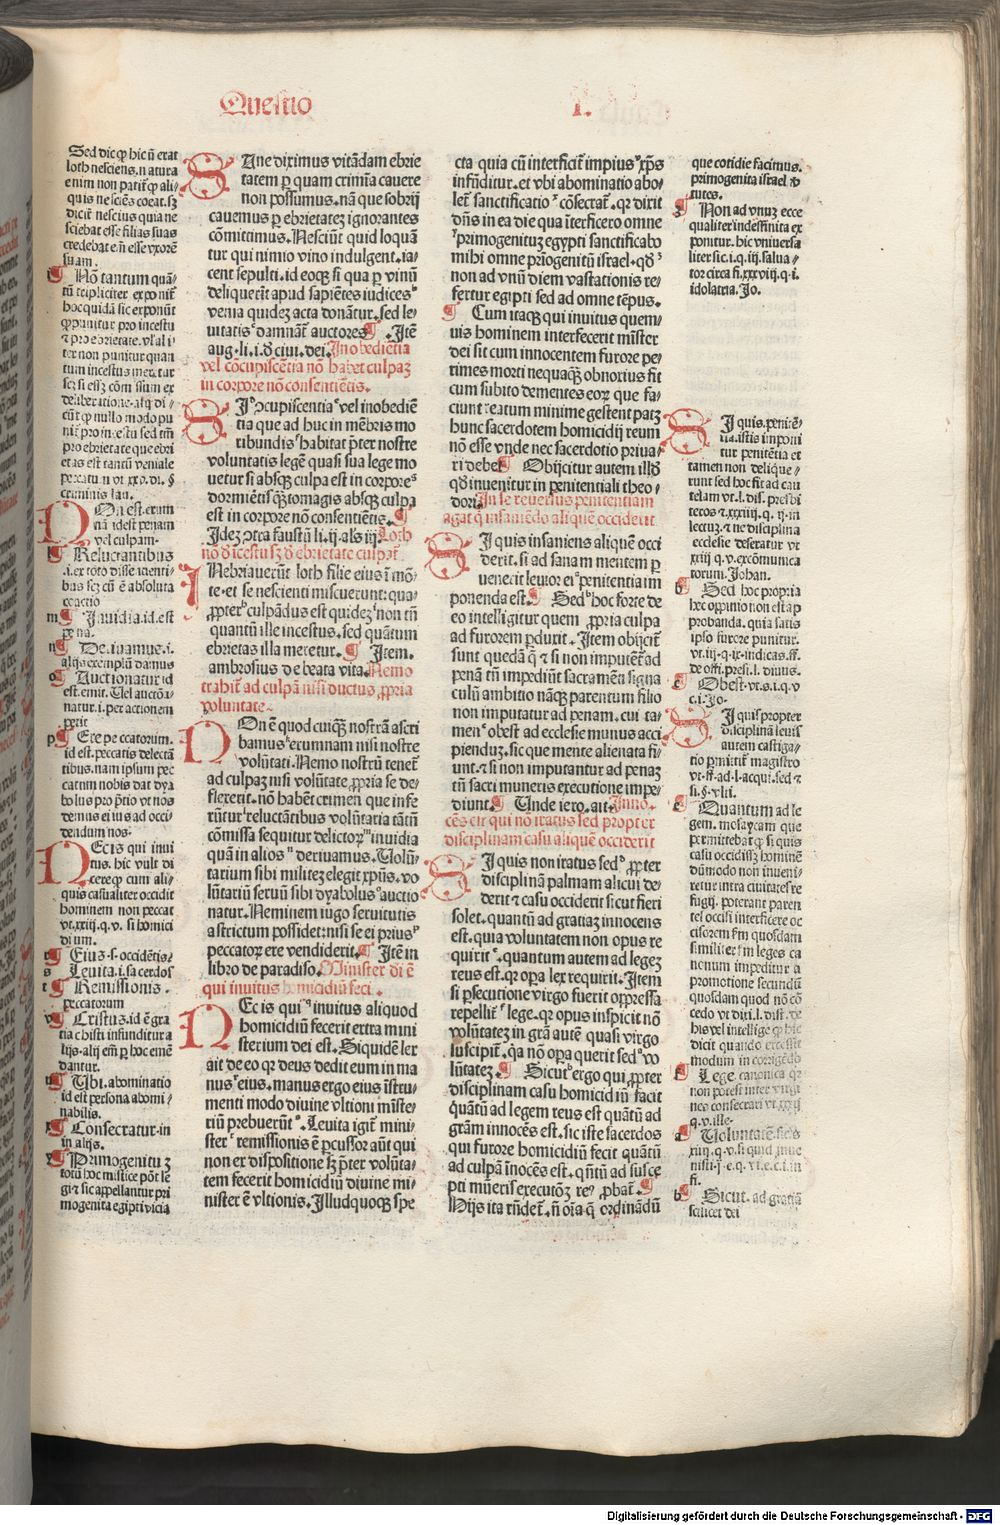 Questio
I.
Sed dic ꝙ hic nō erat
loth nesciens. natura
enim non patit͛ ꝙ ali⸗
quis nesciēs coeat. sꝫ
dicit͛ nescius quia ne
sciebat esse filias suas
credebat eī esse vxorē
suam.
Nō tantum quā⸗
hoc quidā sic exponūt
ꝙ punitur pro incestu
⁊ pro ebrietate. vl' al i
ter non punitur quan
tum incestus meretur
pro ebrietate que ebri
etas est tantū veniale
criminis lau.
Non est. erum
nā idest penam
vel culpam.
Reluctantibus
.i. ex toto dissentienti⸗
bus sꝫ cū ē absoluta
coactio
Inuidia .id. est
pena.
Deriuamus .i.
alijs exemplū damus
Auctionatur id
est. emit. Uel auctio⸗
natur. i. per actionem
perit
Ere peccatorum.
id est. peccatis delectā
tibus. nam ipsum pec
catum nobis dat dya
bolus pro p̄tio vt nos
demus ei ius ad occi
dendum nos.
Nec is qui inui
tus. hic vult di
cere ꝙ cum ali⸗
quis casualiter occidit
hominem non peccat
vt. xxiij. q. v. si homici
dium.
Eius .s. occidētis.
Leuita .i. sacerdos
Remissionis.
peccatorum
Cristus. id ē gra
tia christi infunditur a
lijs. alij eīm ꝑ hoc emē
dantur.
Ubi. abominatio
id est persona abomi⸗
nabilis.
Consecratur. in
in alijs.
Primogenituꝫ
totū hoc mistice pōt le
gi ⁊ sic appellantur pri
mogenita egipti vicia
Sane diximus vitādam ebrie
tatem ꝑ quam crimīa cauere
non possumus. nā que sobrij
cauemus ꝑ ebrietateꝫ ignorantes
cōmittimus. Nesciūt quid loquā
tur qui nimio vino indulgent. ia⸗
cent sepulti. id eoqꝫ si qua ꝑ vinū
deliquerīt apud sapiētes iudices
venia quidez acta donātur. sed le⸗
uitatis damnāt auctores. Itē
aug. li. i. ð ciui. dei. Inobediētia
vel cōcupiscētia nō habet culpaꝫ
in corpore nō consentiētis.
Si ꝯcupiscentia vel inobediē
tia que ad huc in mēbris mo
ribundis habitat p̄ter nostre
voluntatis legē quasi sua lege mo
uetur si absqꝫ culpa est in corpore
dormiētis q̄ꝫtomagis absqꝫ culpa
est in corpore nō consentiētis.
Idez ꝯtra faustū li. ij. als iij. Loth
nō ð icestu sꝫ ð ebrietate culpat͛.
Inebriauerūt loth filie eius ī mō⸗
te. et se nescienti miscuerunt: qua⸗
ꝓpter culpādus est quidez non tn̄
quantū ille incestus. sed quātum
ebrietas illa meretur. Item.
ambrosius de beata vita. Nemo
trahit͛ ad culpā nisi ductus ꝓpria
voluntate.
Non ē quod cuiqꝫ nostrā ascri
bamus erumnam nisi nostre
volūtati. Nemo nostrū tenet͛
ad culpaꝫ nisi volūtate ꝓpria se de⸗
flexerit. nō habēt crimen que infe
rūtur reluctātibus volūtaria tātū
cōmissa sequitur delictoꝝ inuidia
quā in alios deriuamus. Uolū⸗
tarium sibi militeꝫ elegit xp̄us. vo
lūtariū seruū sibi dyabolus auctio
natur. Neminem iugo seruitutis
astrictum possidet: nisi se ei prius
peccatoꝝ ere vendiderit. Itē in
libro de paradiso. Minister dī ē
qui inuitus homicidiū feci .
Nec is qui inuitus aliquod
homicidiū fecerit extra mini
sterium dei est. Siquidē lex
ait de eo qꝛ deus dedit eum in ma
nus eius. manus ergo eius īstru⸗
menti modo diuine vltioni mīste⸗
riū prebuerūt. Leuita igit͛ mini⸗
ster remissionis ē ꝑcussor aūt qui
non ex dispositione sꝫ p̄ter volūta⸗
tem fecerit homicidiū diuine mi⸗
nister ē vltionis. Illudquoqꝫ spe
cta quia cū interficit͛ impius xp̄s
infūditur. et vbi abominatio abo⸗
let͛ sanctificatio cōsecrat͛. qꝛ dixit
dn̄s in ea die qua īterficero omne
primogenituꝫ egypti sanctificabo
mihi omne prīogenitū israel. qð
non ad vnū diem vastationis re⸗
fertur egipti sed ad omne tēpus.
Cum itaqꝫ qui inuitus quem⸗
uis hominem interfecerit mīster
dei sit cum innocentem furore pe⸗
rimes morti nequaqꝫ obnoxius sit
cum subito dementes eoꝝ que fa⸗
ciunt reatum minime gestent patꝫ
hunc sacerdotem homicidij reum
nō esse vnde nec sacerdotio priua⸗
ri debet. Obijcitur autem illð
qð inuenitur in penitentiali theo⸗
dori. In se reuersus penitentiam
agat q̄ insaniēdo aliquē occiderit
Si quis insaniens aliquē occi
derit. si ad sanam mentem ꝑ
uenerit leuior ei penitentia im
ponenda est. Sed hoc forte de
eo intelligitur quem ꝓpria culpa
ad furorem ꝑduxit. Item obijcit͛
sunt quedā q̄ ⁊ si non imputēt͛ ad
penā tn̄ impediūt sacramēta signa
culū ambitio nāqꝫ parentum filio
non imputatur ad penam. cui ta⸗
men obest ad ecclesie munus acci
piendum. sic que mente alienata fi⸗
unt. ⁊ si non imputantur ad penaꝫ
tn̄ sacri muneris executionē impe⸗
diunt. Unde iero. ait. Inno⸗
cēs eit qui nō iratus sed propter
disciplinam casu aliquē occiderit
Si quis non iratus sed ꝓpter
disciplinā palmam alicui de⸗
derit ⁊ casu occiderit sicut fieri
solet. quantū ad gratiaꝫ innocens
est. quia voluntatem non opus re
quirit. quantum autem ad legeꝫ
reus est. qꝛ opa lex requirit. Item
si ꝑsecutione virgo fuerit oppressa
repellit͛ lege. qꝛ opus inspicit nō
volūtateꝫ in grā autē quasi virgo
suscipit͛. qꝛ nō opa querit sed vo
lūtateꝫ. Sicut ergo qui ꝓpter
disciplinam casu homicidiū facit
quātū ad legem reus est quātū ad
grām innocēs est. sic iste sacerdos
qui furore homicidiū fecit quātū
ad culpā inocēs est. q̄ntū ad susce
pti mūeris executōꝫ re ꝓbat͛.
Hijs ita rn̄det͛. ñ oīa q̄ ordinādū
que cotidie facimus.
primogenita israel v͛
tutes.
Non ad vnuꝫ ecce
qualiter indeffinita ex
ponitur. hic vniuersa
liter sic. i. q. iij. salua⸗
tor circa fi. xxviij. q. i.
idolatria. Jo.
Si quis. penitē⸗
tia. istis imponi
tur penitētia et
tamen non delique⸗
runt sed hoc fit ad cau
telam vt. l. dis. presbi
teros ⁊ xxxiij. q. ij. in
lectuꝫ. ⁊ ne disciplina
ecclesie deseratur vt
xxiij q. v. excōmunica
torum. Johan.
Sed hoc propria
hec oppinio non est ap
probanda. quia satis
ipso furore punitur.
vt. iij. q. ix. indicas. ff.
de offi. presi. l. diuus.
Obest. vt. s. i. q. v
c. i. Jo.
Si quis propter
disciplinā leuis
autem castiga⸗
tio ꝑmittit͛ magistro
vt. ff. ad. l. acqui. sed ⁊
si. §. vlti.
Quantum ad le
gem. mosaycam que
permittebat ꝙ si quis
casu occidissꝫ hominē
dūmodo non inueni⸗
retur intra ciuitates re
fugij. poterant paren
tes occisi interficere oc
cisorem sm̄ quosdam
similiter sm̄ leges ca
nonum impeditur a
promotione secundū
quosdam quod nō cō
cedo vt dixi. l. dist. de
his vel intellige ꝙ hic
dicit quando excessit
modum in corrigēdo
Lege. canonica qꝛ
non potest inter virgi
nes consecrari vt xxxij
q. v. ille.
Uoluntatē. sic. s
xiij. q. v. si quid inue
nisti. ⁊ e. q. vi. c. i. in
fi.
Sicut. ad gratiā
scilicet dei
Digitalisierung gefördert durch die Deutsche Forschungsgemeinschaft - DFG